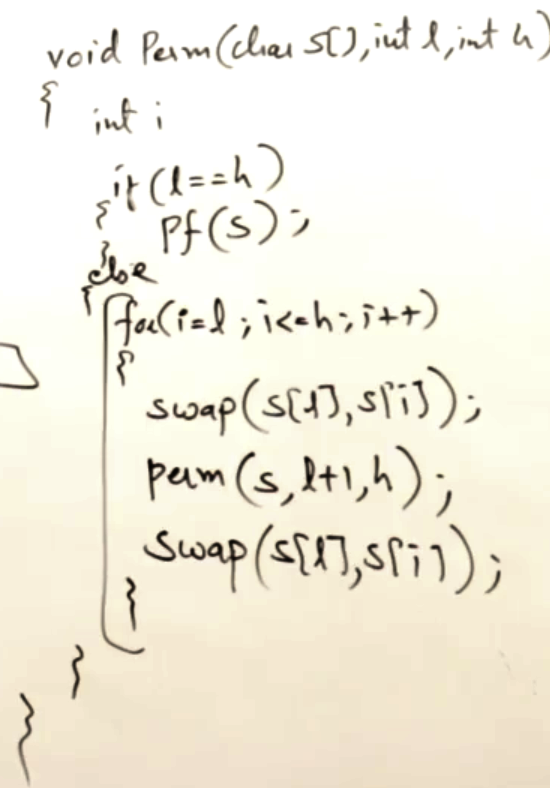 void Perm(char s[], int l, int h)
{ int i
if (l==h)
{ Pf(s);
}
else
{ for(i=l; i<=h; i++)
{
swap(s[l], s[i]);
perm(s, l+1, h);
swap(s[l], s[i]);
}
}
}